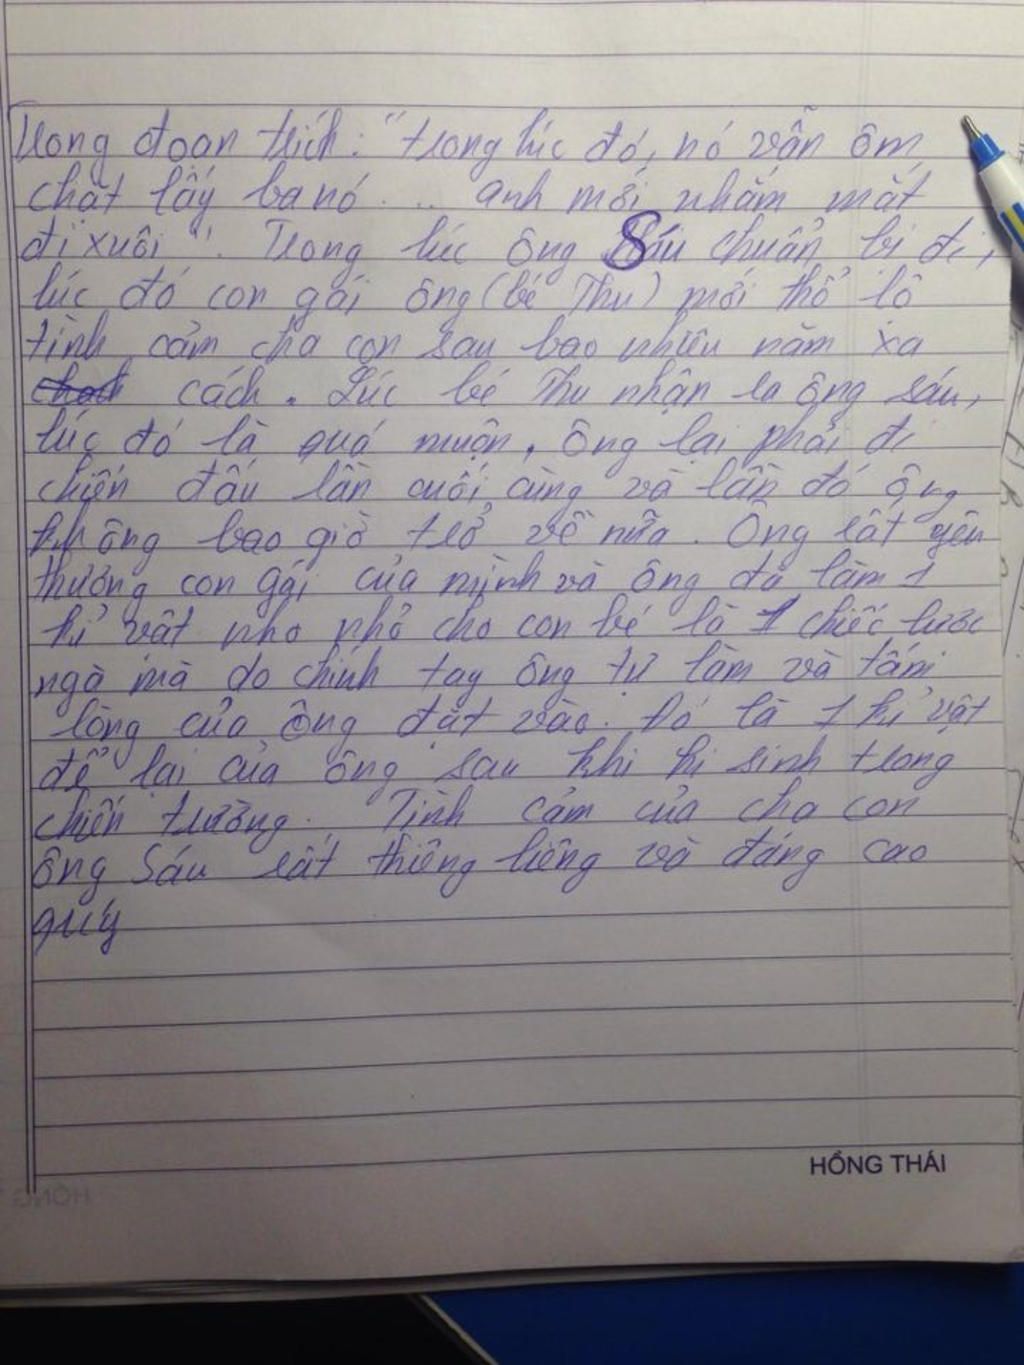 Trong đoạn trích: "trong lúc đó, nó vẫn ôm
chặt lấy ba nó ... anh mới nhắm mắt
đi xuôi". Trong lúc ông Sáu chuẩn bị đi,
lúc đó con gái ông (bé Thu) mới thổ lộ
tình cảm cha con sau bao nhiêu năm xa
cách. Lúc bé Thu nhận ra ông sáu,
lúc đó là quá muộn, ông lại phải đi
chiến đấu lần cuối cùng và lần đó ông
không bao giờ trở về nữa. Ông rất yêu
thương con gái của mình và ông đã làm 1
kỉ vật nho nhỏ cho con bé là 1 chiếc lược
ngà mà do chính tay ông tự làm và tấm
lòng của ông đặt vào. Đó là 1 kỉ vật
để lại của ông sau khi hi sinh trong
chiến trường. Tình cảm của cha con
ông Sáu rất thiêng liêng và đáng cao
quý
HỒNG THÁI